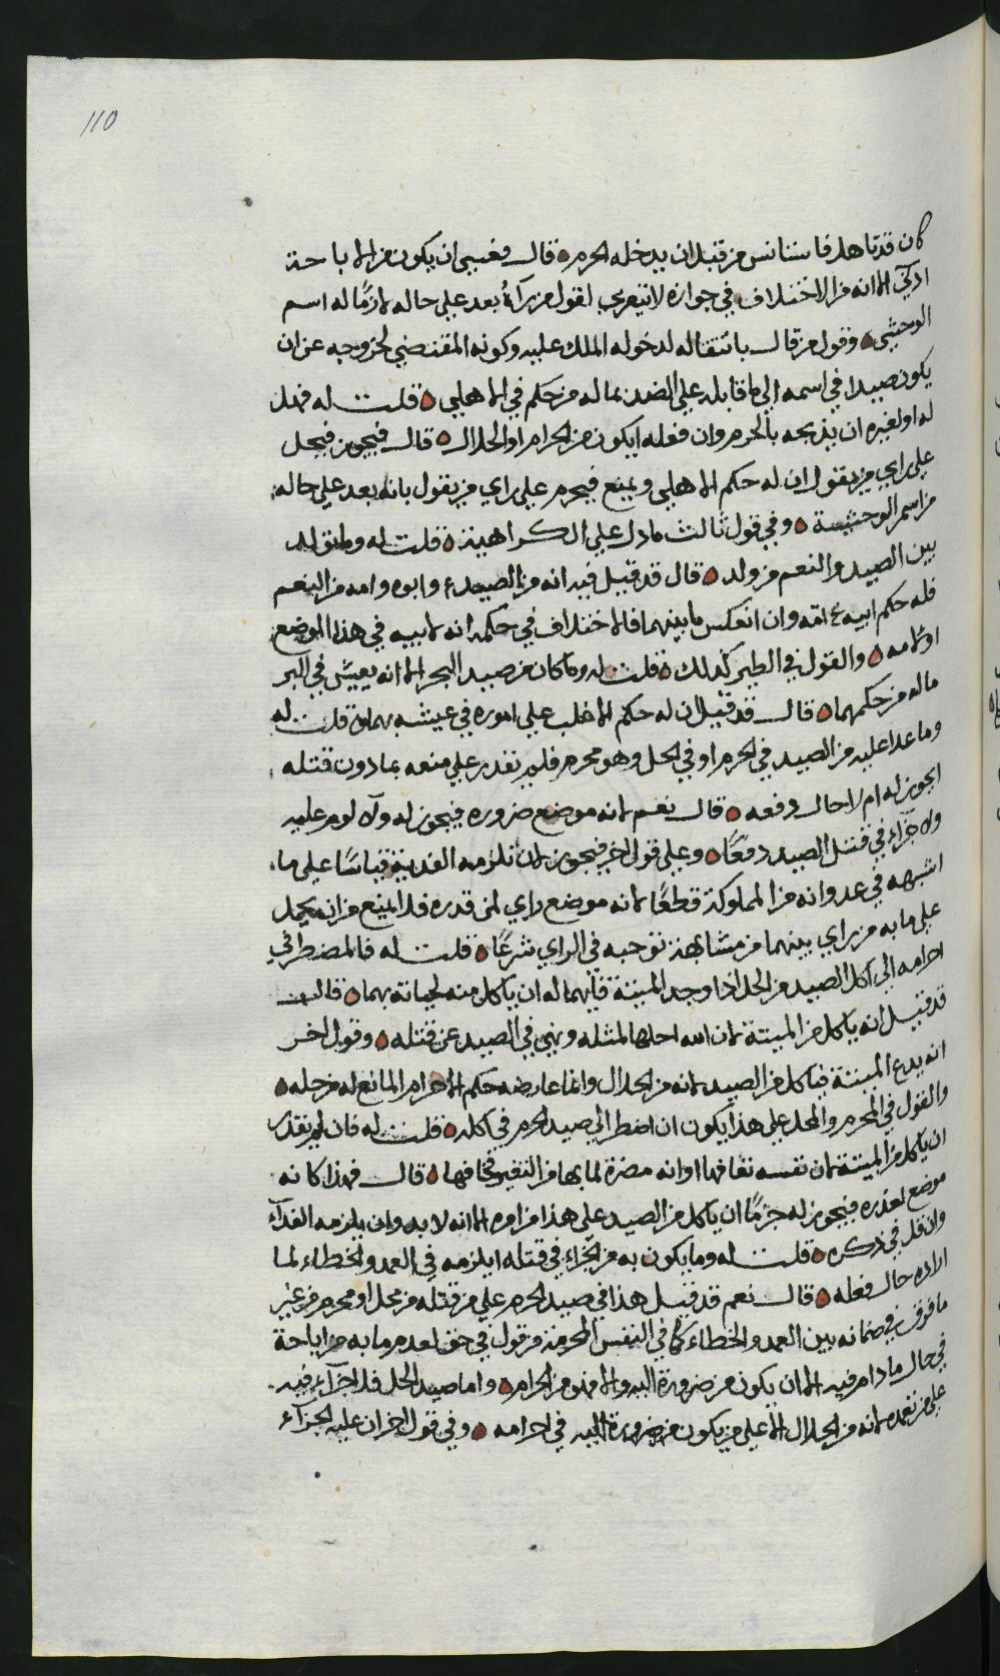 110
كان قد تاهل فاستانس من قبل ان يدخله الحرم ؞ قال فعسى ان يكون من الاباحة
ادنى الا انه من الاختلاف في جوازه لا يتعرى لقول من رآه بعد على حاله لازمًا له اسم
الوحشي ؞ وقول من قال بانتقاله لدخوله الملك عليه وكونه المقتضي لخروجه عن ان
يكون صيدا في اسمه الى ما قابله على الضد بما له من حكم في الاهلي ؞ قلت له فهل
له او لغيره ان يذبحه بالحرم وان فعله ايكون من الحرام او الحلال ؞ قال فيجوز فيحل
على راي من يقول ان له حكم الاهلي ويمنع فيحرم على راي من يقول بانه بعد على حاله
من اسم الوحشية ؞ وفي قول ثالث ما دل على الكراهية ؞ قلت له وما تولد
بين الصيد والنعم من ولد ؞ قال قد قيل فيه انه من الصيد ع وابوه وامه من النعم
فله حكم ابيه ع امه وان انعكس ما بينهما فالاختلاف في حكمه انه لابيه في هذا الموضع
او لامه ؞ والقول في الطير كذلك ؞ قلت له وما كان من صيد البحر الا انه يعيش في البر
ماله من حكمهما ؞ قال قد قيل ان له حكم الاغلب على اموره في عيشه بهما ؞ قلت له
وما عدا عليه من الصيد في الحرم او في الحل وهو محرم فلم يقدر على منعه بما دون قتله
ايجوز له ام لا حال دفعه ؞ قال نعم لانه موضع ضروره فيجوز له ولا لوم عليه
ولا جزاء في قتل الصيد دفعًا ؞ وعلى قول اخر فيجوز لان تلزمه الفدية قياسًا على ما
اشبهه في عدوانه من المملوكة قطعًا لانه موضع راي لمن قدره فلا امنع من ان يحمل
على ما به من راي بينهما من مشابهة توجبه في الراي شرعًا ؞ قلت له فالمضطر في
احرامه الى اكل الصيد من الحل اذا وجد الميتة فايهما له ان ياكل منه لحياته بهما ؞ قال
قد قيل انه ياكل من الميتة لان الله احلها لمثله ونهى في الصيد عن قتله ؞ وقول اخر
انه يدع الميتة فياكل من الصيد لانه من الحلال وانما عارضه حكم الاحرام المانع له من حله ؞
والقول في المحرم والمحل على هذا يكون ان اضطر الى صيد الحرم في اكله ؞ قلت له فان لم يقدر
ان ياكل من الميتة لان نفسه تعافها او انه مضرة لما بها من التغير فخافها ؞ قال فهذا كانه
موضع لعذره فيجوز له جزمًا ان ياكل من الصيد على هذا من امره الا انه لا بد وان يلزمه الفداء
وان قل في ذكره ؞ قلت له وما يكون به من الجزاء في قتله ايلزمه في العمد والخطاء لما
اراده حال فعله ؞ قال نعم قد قيل هذا في صيد الحرم على من قتله من محل او محرم من غير
ما فرق في ضمانه بين العمد والخطاء كما في النفس المحرمة من قول في حق لعدم ما به من اباحة
في حال ما دام فيه الا ان يكون من ضرورة اليه والا فهو من الحرام ؞ واما صيد الحل فلا جزاء فيه
على من تعمده لانه من الحلال الا على من يكون من ضرورة اليه في احرامه ؞ وفي قول اخر ان عليه الجزاء